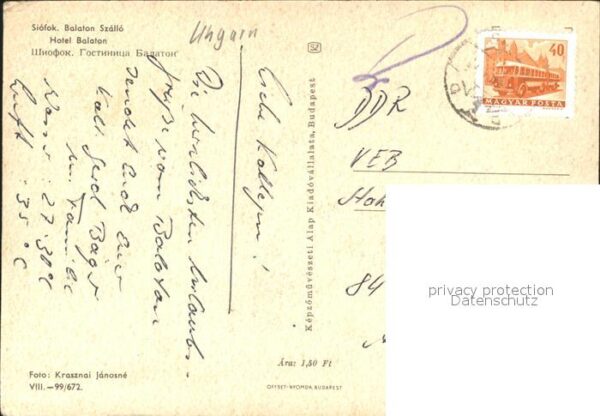 Siófok. Balaton Szálló
Hotel Balaton
Шиофок. Гостиница Балатон
Ungarn
Liebe Kollegen!
Die herzlichsten Urlaubs-
grüße vom Balaton
sendet Euch Euer
Koll. Gerd
u. Familie
Wasser 27-30°C
Luft 35°C
Foto: Krasznai Jánosné
VIII.—99/672.
Képzőművészeti Alap Kiadóvállalata, Budapest
Ára: 1,50 Ft
OFFSET-NYOMDA, BUDAPEST
40
MAGYAR POSTA
DDR
VEB
84
privacy protection
Datenschutz